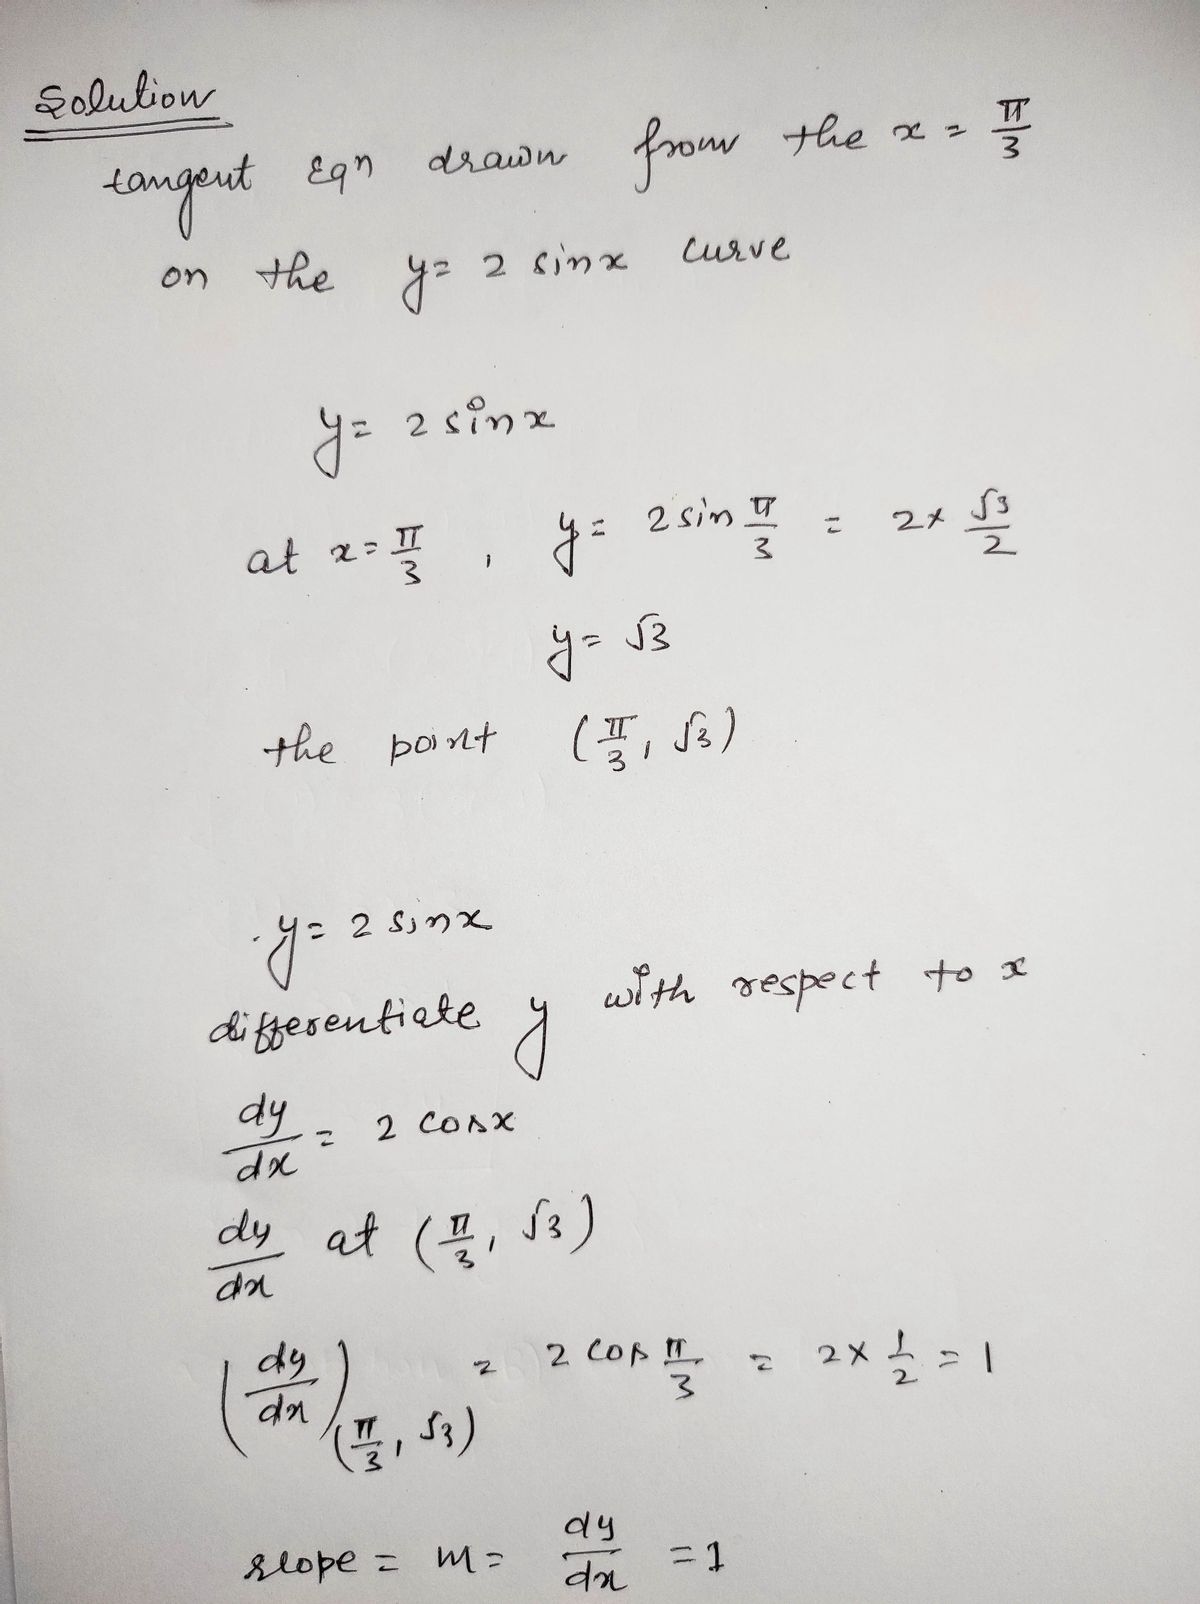 Solution
tangent Eqn drawn from the x = π/3
on the y = 2 sinx curve
y = 2 sinx
at x = π/3 , y = 2 sin π/3 = 2 × √3/2
y = √3
the point (π/3, √3)
y = 2 sinx
differentiate y with respect to x
dy/dx = 2 cosx
dy/dx at (π/3, √3)
(dy/dx)(π/3, √3) = 2 cos π/3 = 2 × 1/2 = 1
slope = m = dy/dx = 1